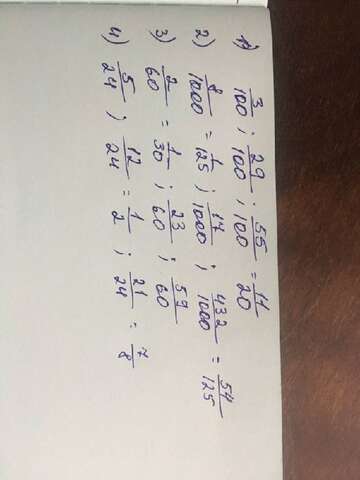 1) 3/100 ; 29/100 ; 55/100 = 11/20
2) 8/1000 = 1/125 ; 17/1000 ; 432/1000 = 54/125
3) 2/60 = 1/30 ; 23/60 ; 59/60
4) 5/24 ; 12/24 = 1/2 ; 21/24 = 7/8